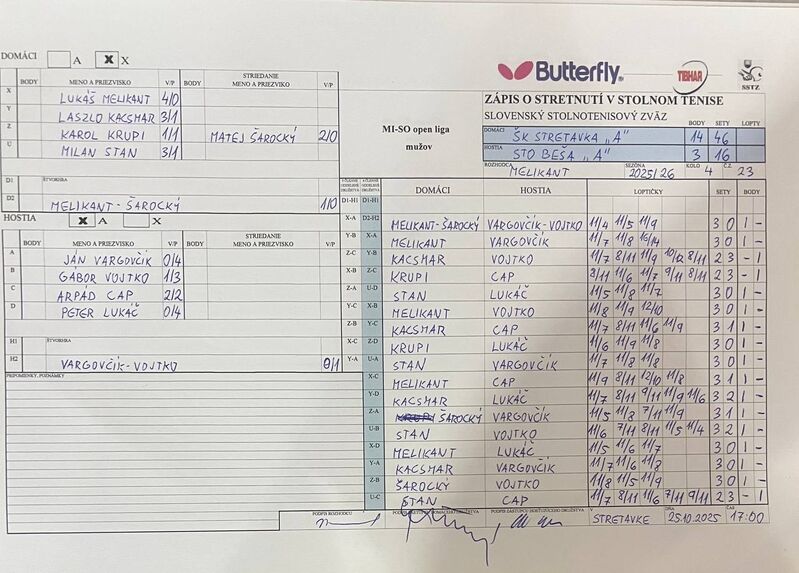 DOMÁCI A X X
BODY MENO A PRIEZVISKO V/P BODY STRIEDANIE MENO A PRIEZVISKO V/P
X LUKÁŠ MELIKANT 4/0
Y LASZLO KACSMAR 3/1
Z KAROL KRUPI 1/1 MATEJ ŠAROCKÝ 2/0
U MILAN STAN 3/1
D1 ŠTVORHRA
D2 MELIKANT-ŠAROCKÝ 1/0
HOSTIA X A X
BODY MENO A PRIEZVISKO V/P BODY STRIEDANIE MENO A PRIEZVISKO V/P
A JÁN VARGOVČÍK 0/4
B GÁBOR VOJTKO 1/3
C ARPÁD CAP 2/2
D PETER LUKÁČ 0/4
H1 ŠTVORHRA
H2 VARGOVČÍK-VOJTKO 0/1
PRIPOMIENKY, POZNÁMKY
Butterfly
TIBHAR
SSTZ
MI-SO open liga
mužov
ZÁPIS O STRETNUTÍ V STOLNOM TENISE
SLOVENSKÝ STOLNOTENISOVÝ ZVÄZ
DOMÁCI BODY SETY LOPTY
ŠK STRETAVKA „A" 14 46
HOSTIA
STO BEŠA „A" 3 16
ROZHODCA MELIKANT SEZÓNA 2025/26 KOLO 4 Č.Z. 23
DOMÁCI HOSTIA LOPTIČKY SETY BODY
D1-H1 D1-H1
X-A D2-H2 MELIKANT-ŠAROCKÝ VARGOVČÍK-VOJTKO 11/4 11/5 11/9 3 0 1 -
Y-B X-A MELIKANT VARGOVČÍK 11/7 11/8 16/14 3 0 1 -
Z-C Y-B KACSMAR VOJTKO 11/7 8/11 9/11 10/12 8/11 2 3 - 1
X-B Z-C KRUPI CAP 8/11 11/6 11/7 9/11 8/11 2 3 - 1
Z-A U-D STAN LUKÁČ 11/5 11/8 11/7 3 0 1 -
Y-C X-B MELIKANT VOJTKO 11/8 11/9 12/10 3 0 1 -
Z-B Y-C KACSMAR CAP 11/7 8/11 11/6 11/9 3 1 1 -
X-C Z-D KRUPI LUKÁČ 11/6 11/9 11/8 3 0 1 -
Y-A U-A STAN VARGOVČÍK 11/7 11/8 11/8 3 0 1 -
X-C MELIKANT CAP 11/9 8/11 12/10 11/8 3 1 1 -
Y-D KACSMAR LUKÁČ 11/7 8/11 9/11 11/9 11/6 3 2 1 -
Z-A KRUPI ŠAROCKÝ VARGOVČÍK 11/5 11/8 7/11 11/9 3 1 1 -
U-B STAN VOJTKO 11/6 7/11 8/11 11/5 11/4 3 2 1 -
X-D MELIKANT LUKÁČ 11/5 11/6 11/7 3 0 1 -
Y-A KACSMAR VARGOVČÍK 11/7 11/6 11/8 3 0 1 -
Z-B ŠAROCKÝ VOJTKO 11/8 11/5 11/9 3 0 1 -
U-C STAN CAP 11/7 8/11 11/6 7/11 9/11 2 3 - 1
PODPIS ROZHODCU PODPIS ZÁSTUPCU DOMÁCEHO DRUŽSTVA PODPIS ZÁSTUPCU HOSŤUJÚCEHO DRUŽSTVA V STRETAVKE DŇA 25.10.2025 ČAS 17:00